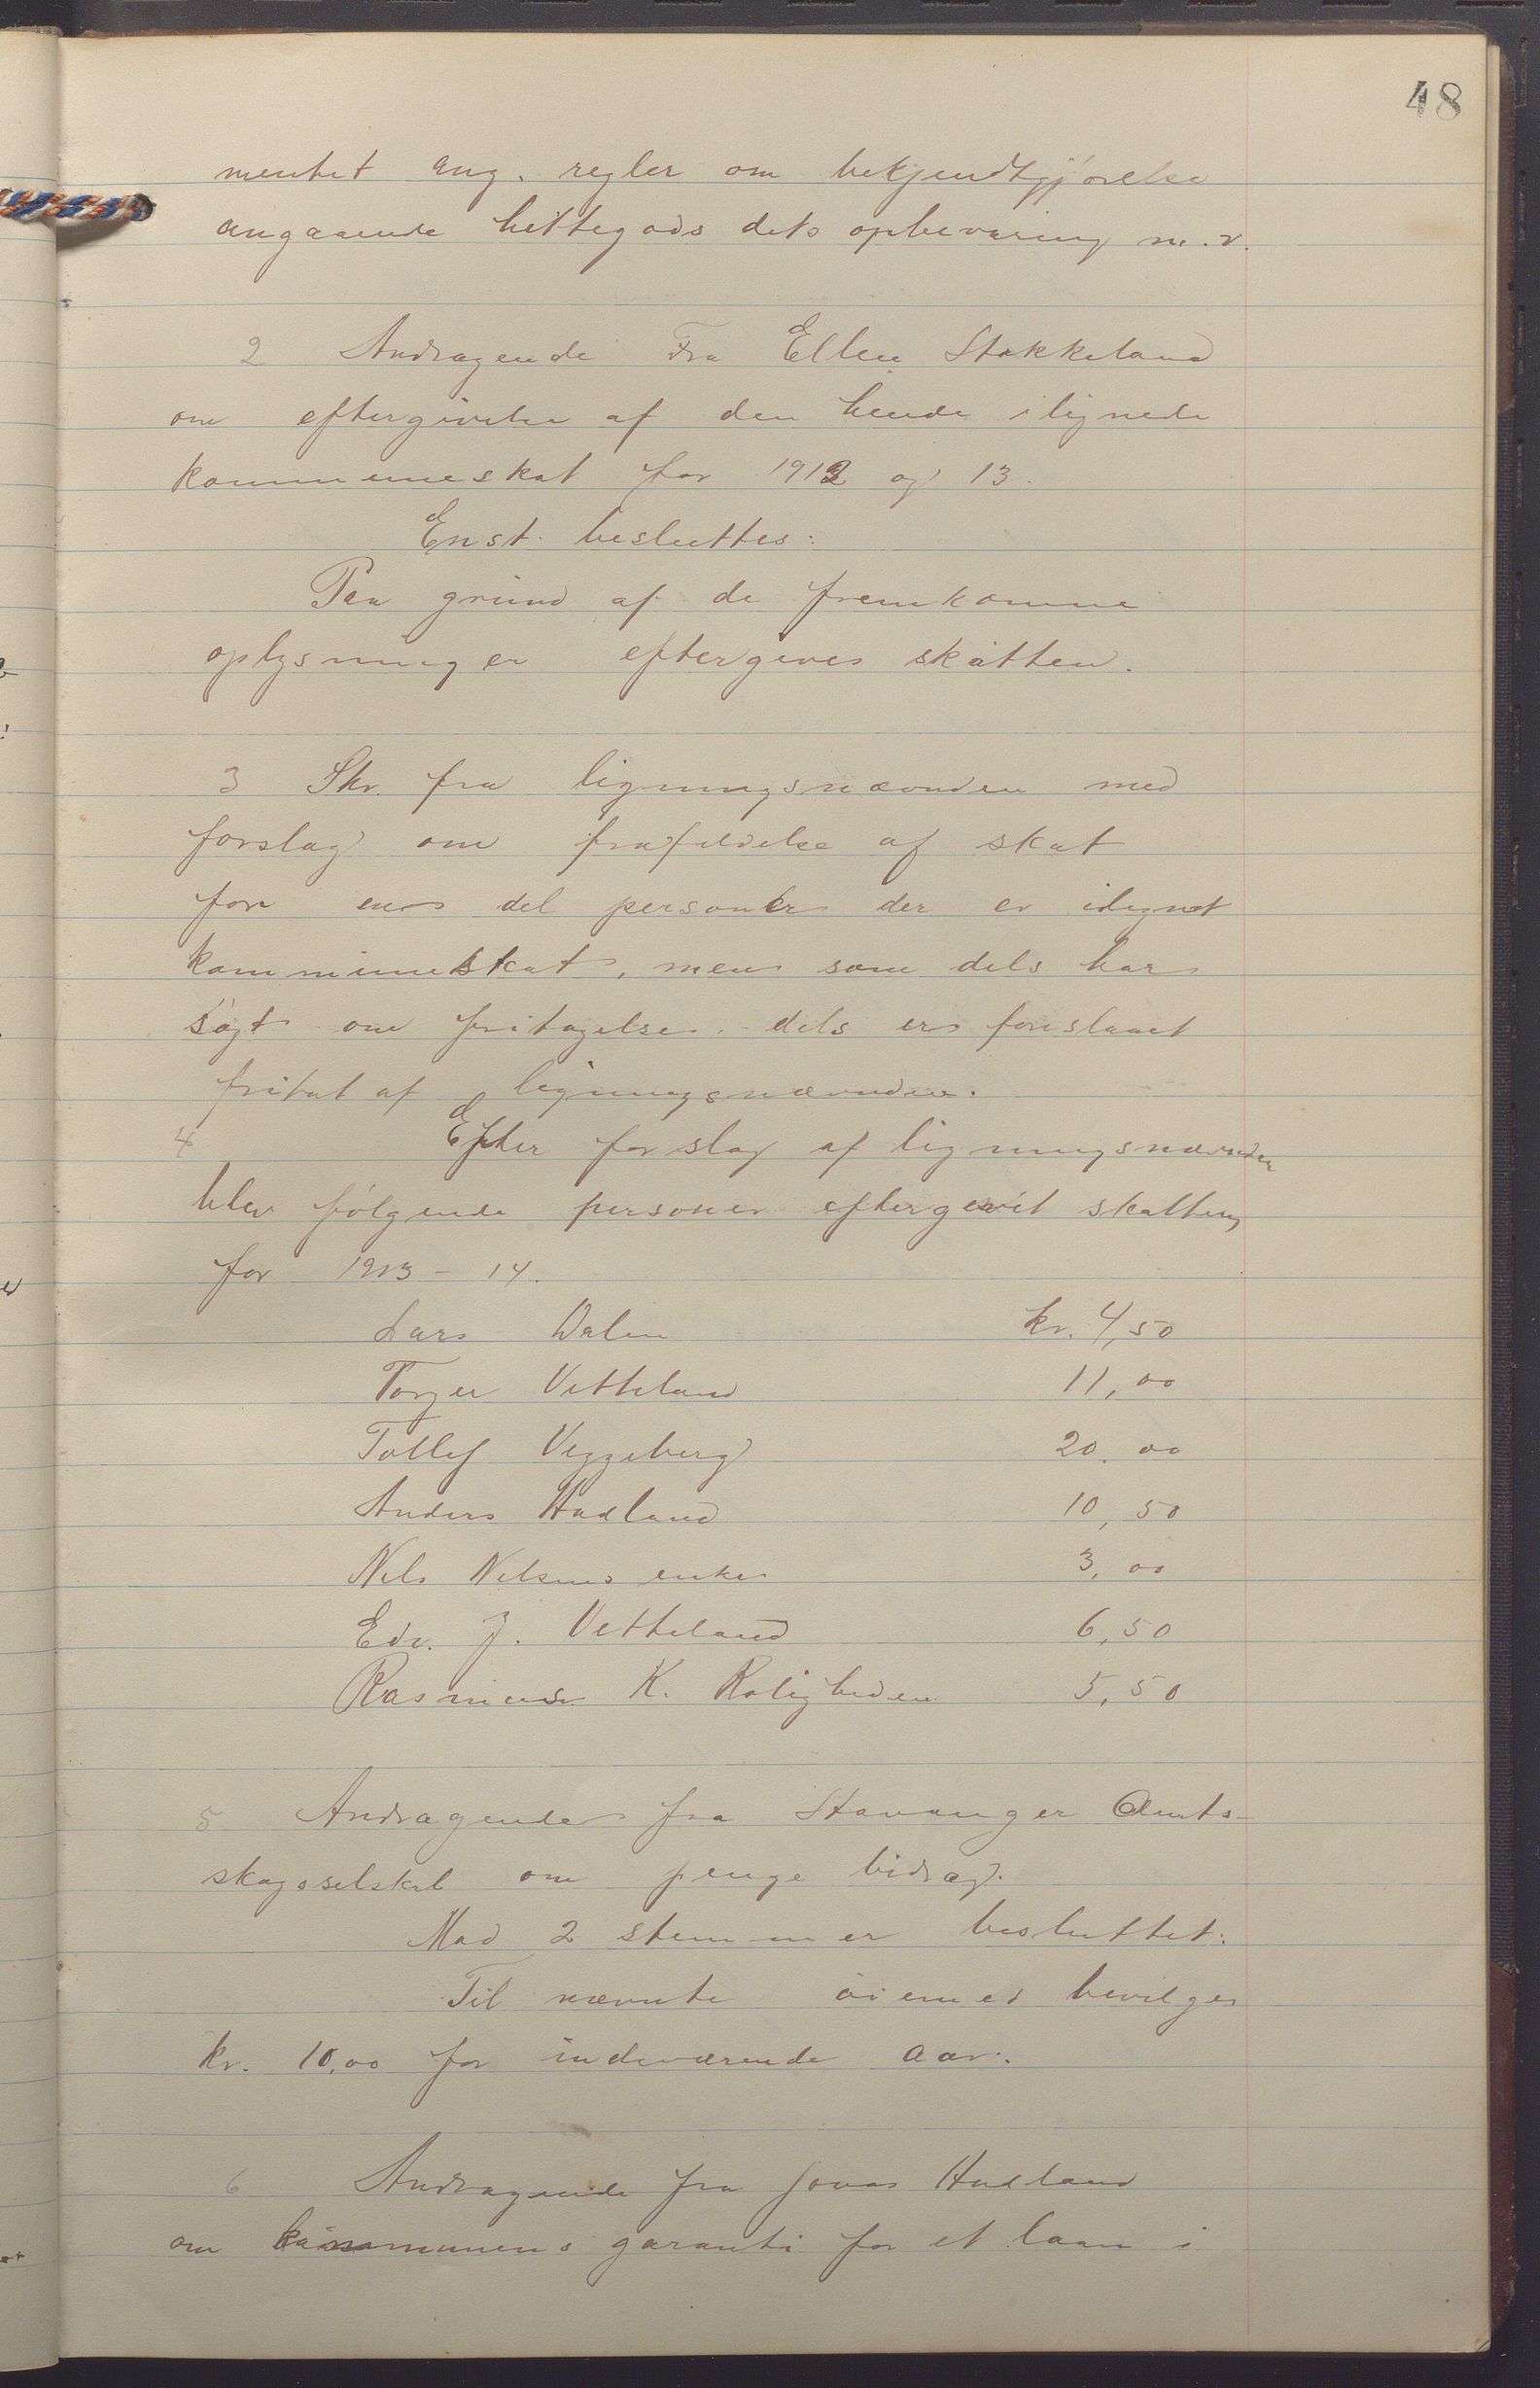 48
mentet ang. regler om bekjendtgjørelse
angaaende hittegods dets opbevaring m.v.
2 Andragende Fra Ellen Stokkeland
om eftergivelse af den hende ilignede
kommuneskat for 1912 og 13.
Enst. besluttes:
Paa grund af de fremkomne
oplysninger eftergives skatten.
3 Skr. fra ligningsnævnden med
forslag om frafældelse af skat
for en del personer der er ilignet
kommuneskat, men som dels har
søgt om fritagelse. dels er foreslaaet
fritat af ligningsnævnden.
4 Efter forslag af ligningsnævnden
blev følgende personer eftergevet skatten
for 1913 - 14.
Lars Dalen kr. 4,50
Torger Vetteland 11,00
Tollef Veggeberg 20.00
Anders Hadland 10,50
Nels Nelsens enke 3,00
Edv. J. Vetteland 6,50
Rasmus K. Roligheden 5,50
5 Andragende fra Stavanger Amts-
skogsselskab om penge bidrag.
Mod 2 stemmer besluttet:
Til nævnte øiemed bevilges
kr. 10,00 for indeværende aar.
6 Andragende fra Jonas Hadland
om kommunens garanti for et laan i